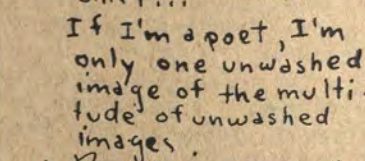 If I'm a poet, I'm
only one unwashed
image of the multi-
tude of unwashed
images.